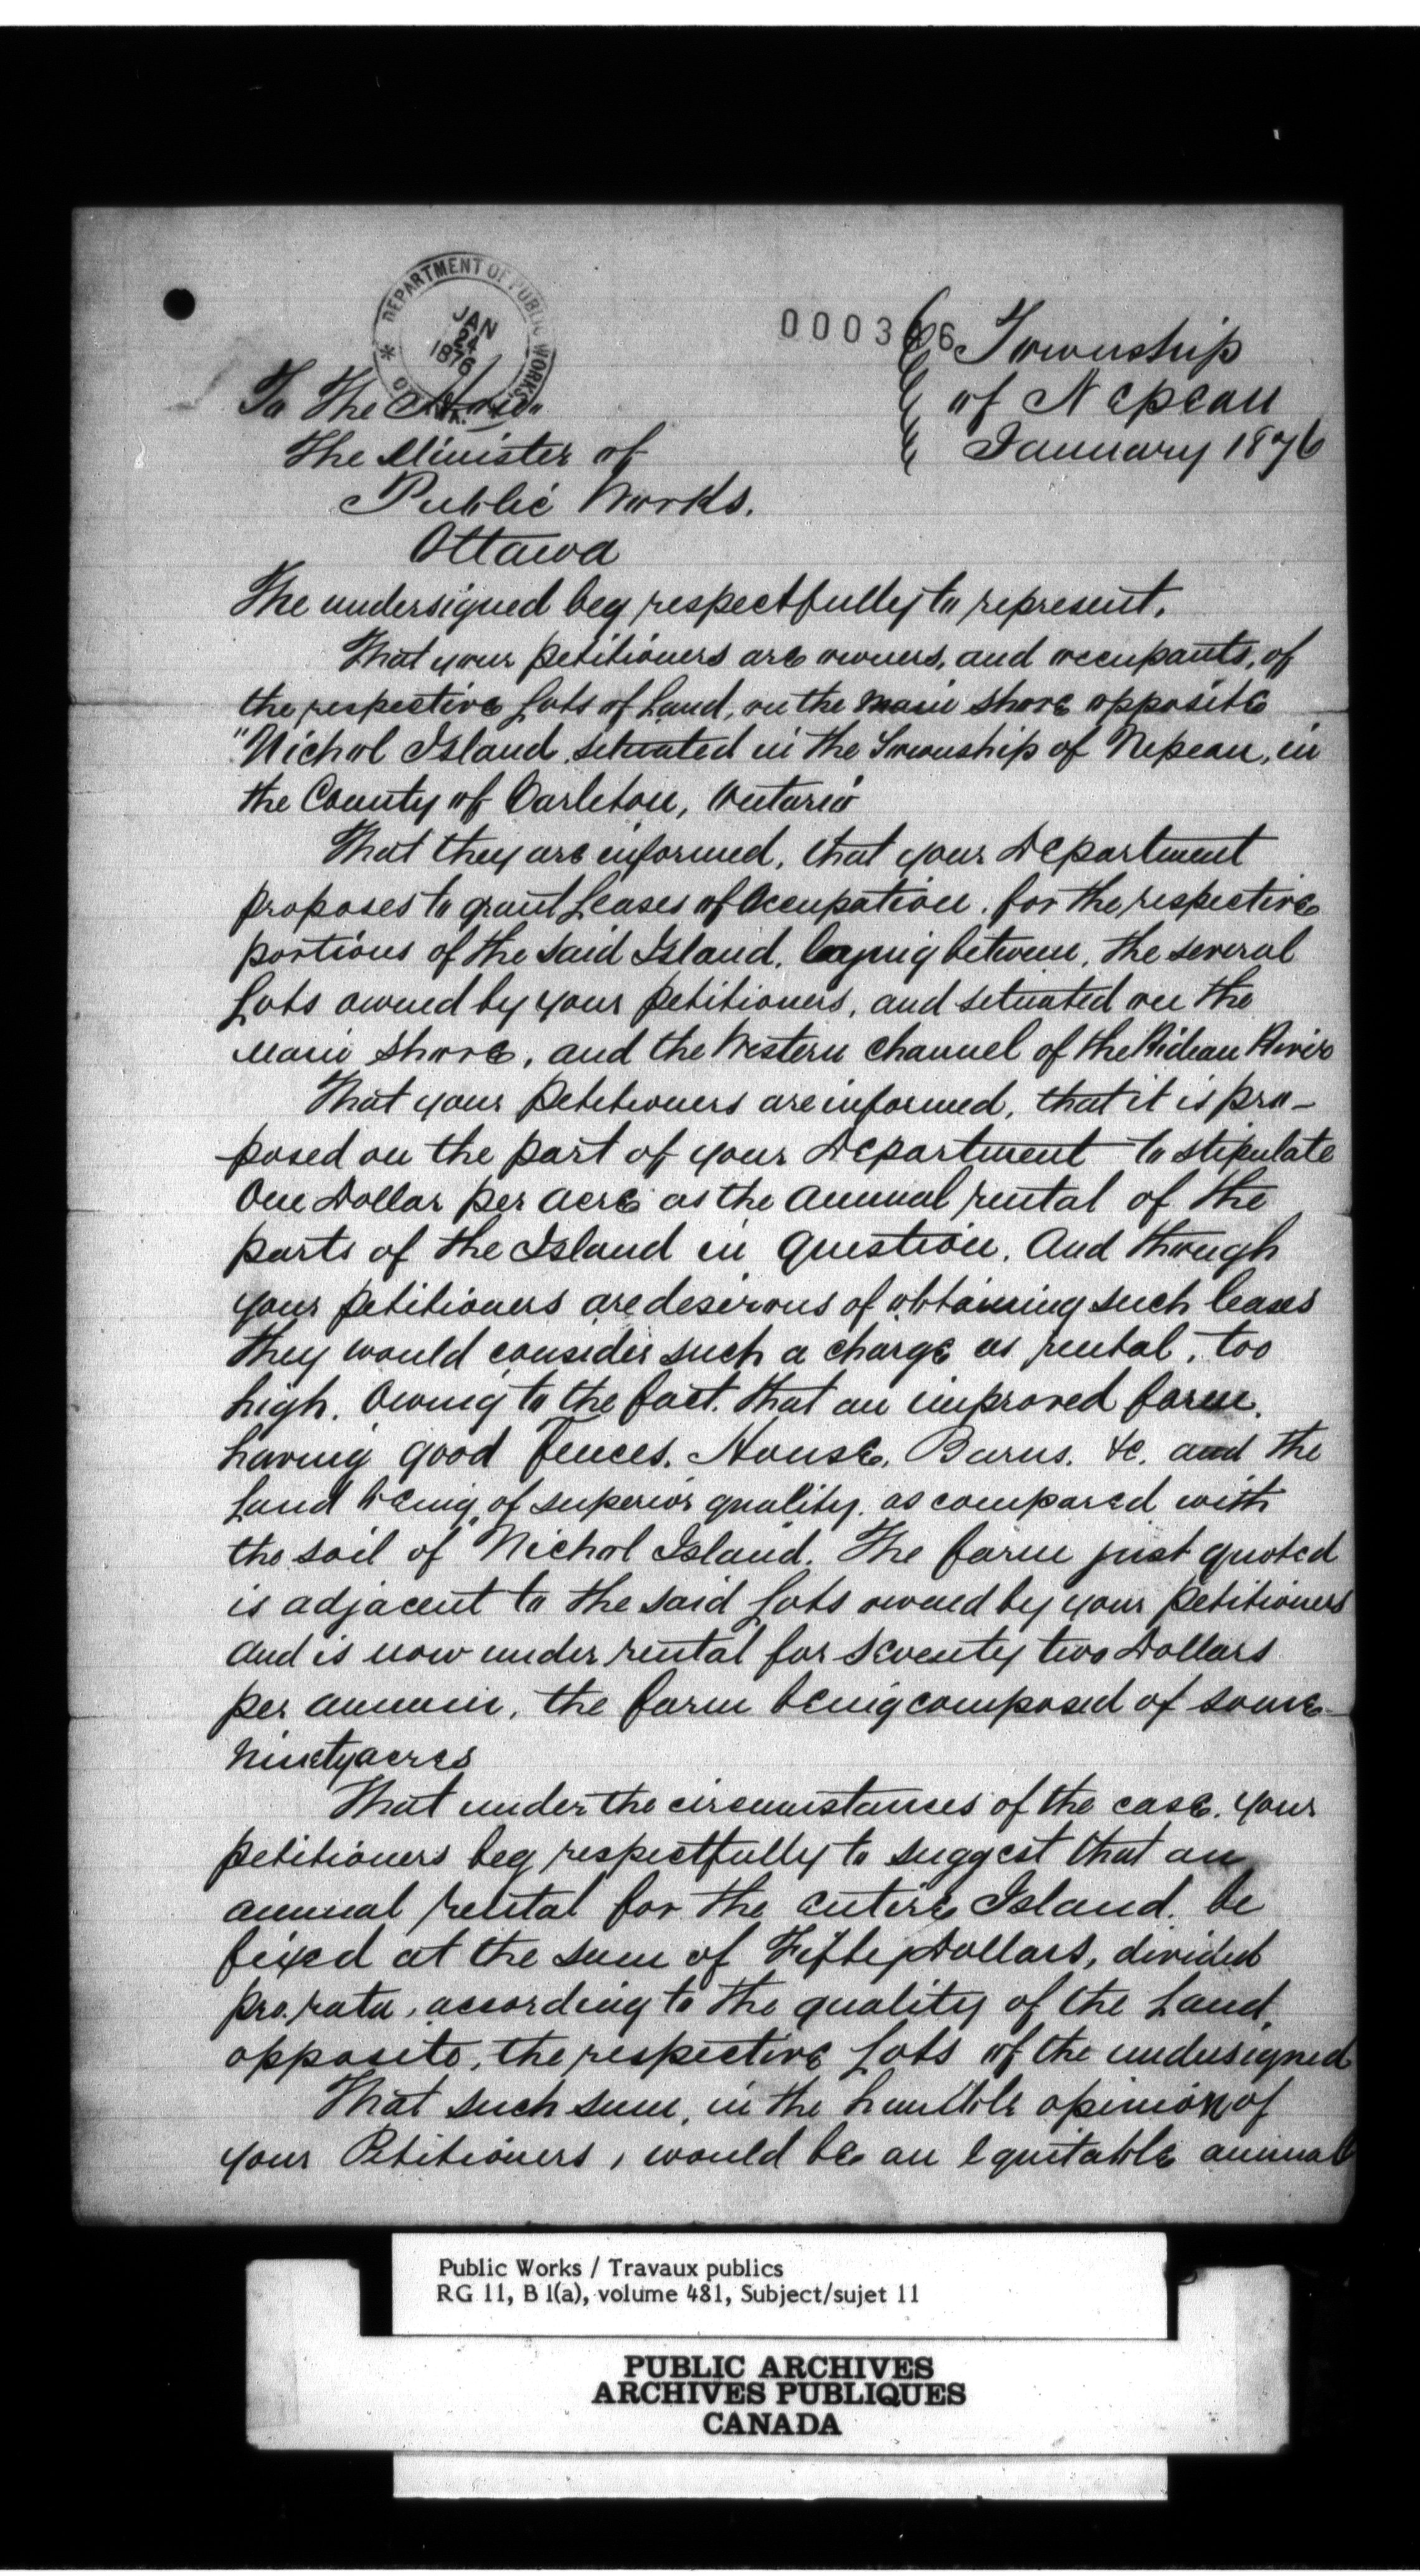 DEPARTMENT OF PUBLIC WORKS
JAN
24
1876
Township
of Nepean
January 1876
To The Hon
The Minister of
Public Works.
Ottawa
The undersigned beg respectfully to represent.
That your petitioners are owners, and occupants, of
the respective Lots of Land, on the main shore opposite
"Nichol Island, situated in the Township of Nepean, in
the County of Carleton, Ontario
That they are informed, that your Department
proposes to grant Leases of Occupation, for the respective
portions of the said Island, laying between, the several
Lots owned by your petitioners, and situated on the
main shore, and the Western channel of the Rideau River
That your petitioners are informed, that it is pro-
posed on the part of your Department to stipulate
One Dollar per acre as the annual rental of the
parts of the Island in question. And though
your petitioners are desirous of obtaining such leases
they would consider such a charge as rental, too
high. Owing to the fact. that an improved farm.
having good Fences. House, Barns. &c. and the
Land being of superior quality. as compared with
the soil of Nichol Island. The farm just quoted
is adjacent to the said Lots owned by your petitioners
and is now under rental for seventy two Dollars
per annum, the farm being composed of some
ninety acres
That under the circumstances of the case. your
petitioners beg respectfully to suggest that an
annual rental for the entire Island. be
fixed at the sum of Fifty Dollars, divided
pro. rata, according to the quality of the Land,
opposite, the respective Lots of the undersigned
That such sum, in the humble opinion of
your Petitioners, would be an equitable annual
Public Works / Travaux publics
RG 11, B 1(a), volume 481, Subject/sujet 11
PUBLIC ARCHIVES
ARCHIVES PUBLIQUES
CANADA